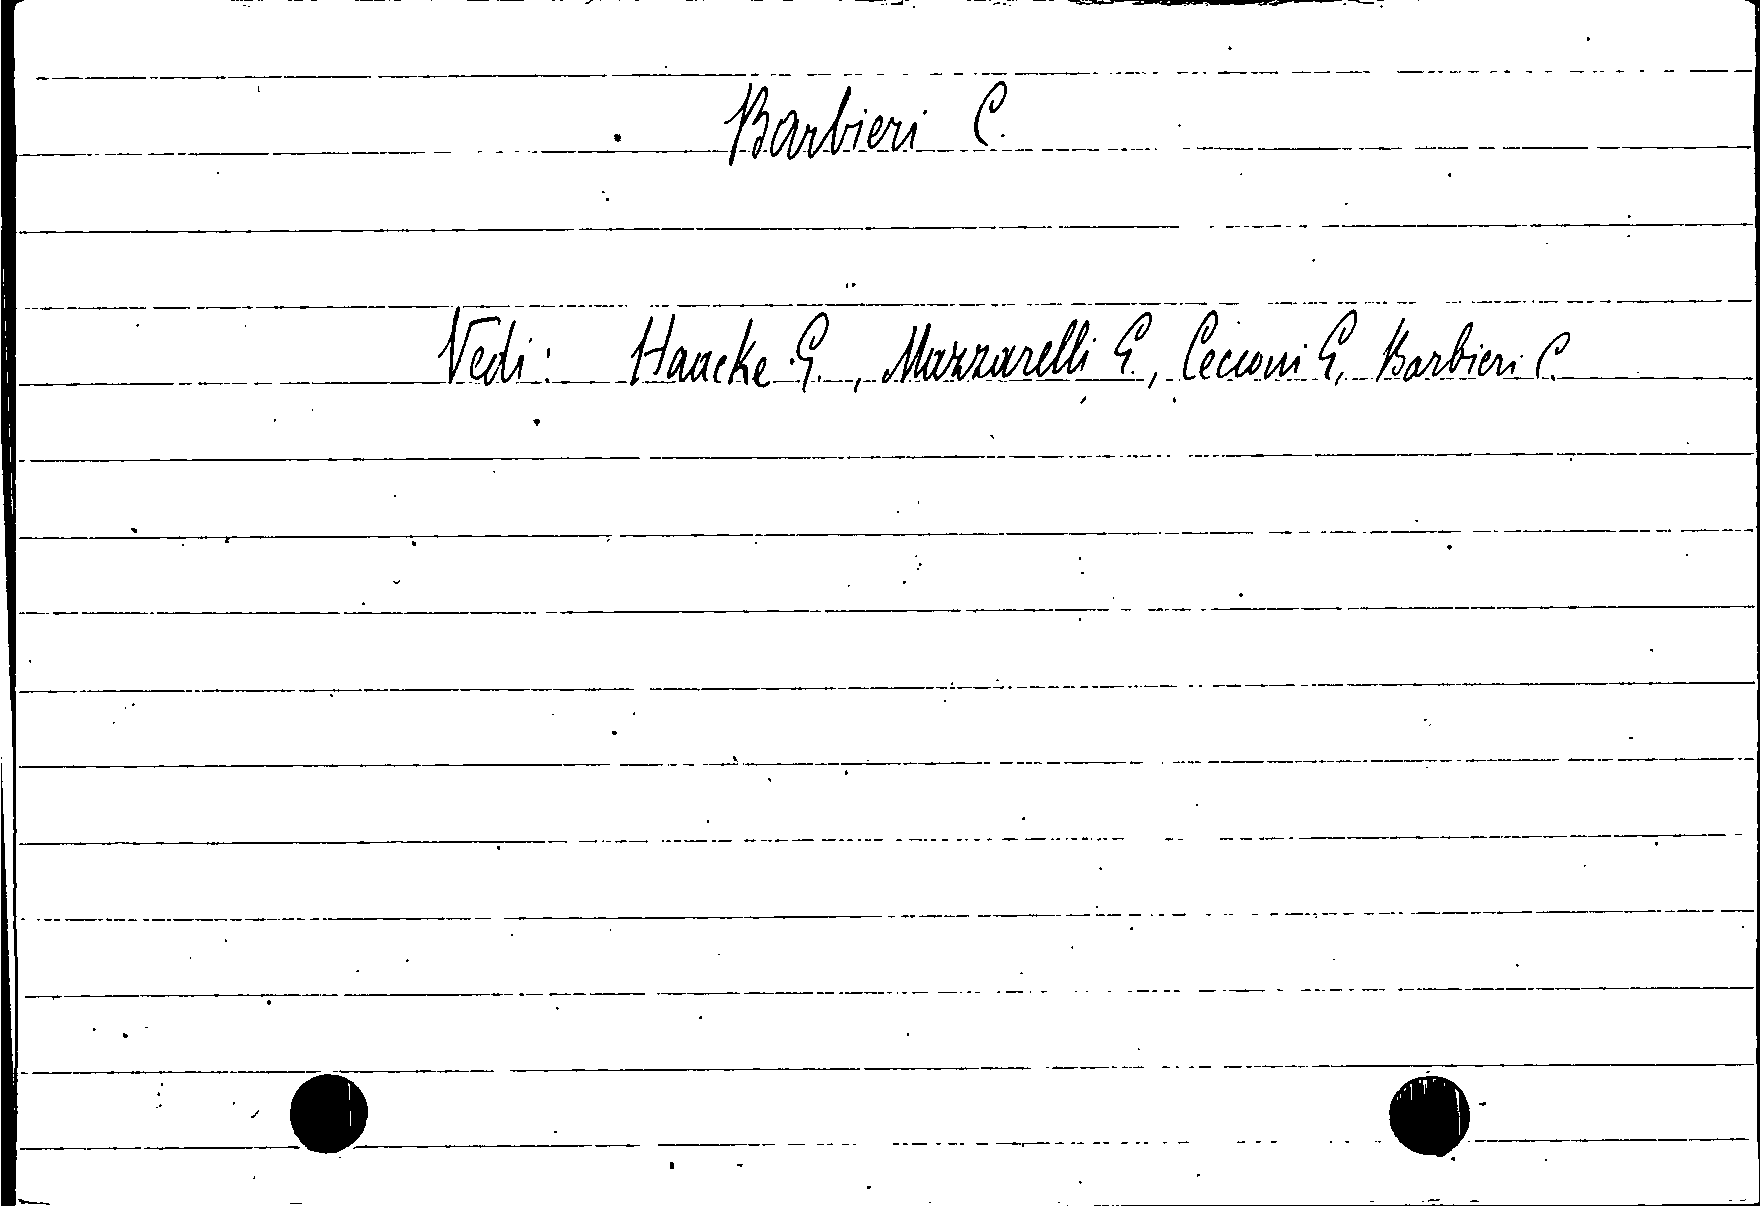 Barbieri C.
Vedi: Haacke G., Mazzarelli G., Cecconi G, Barbieri C.